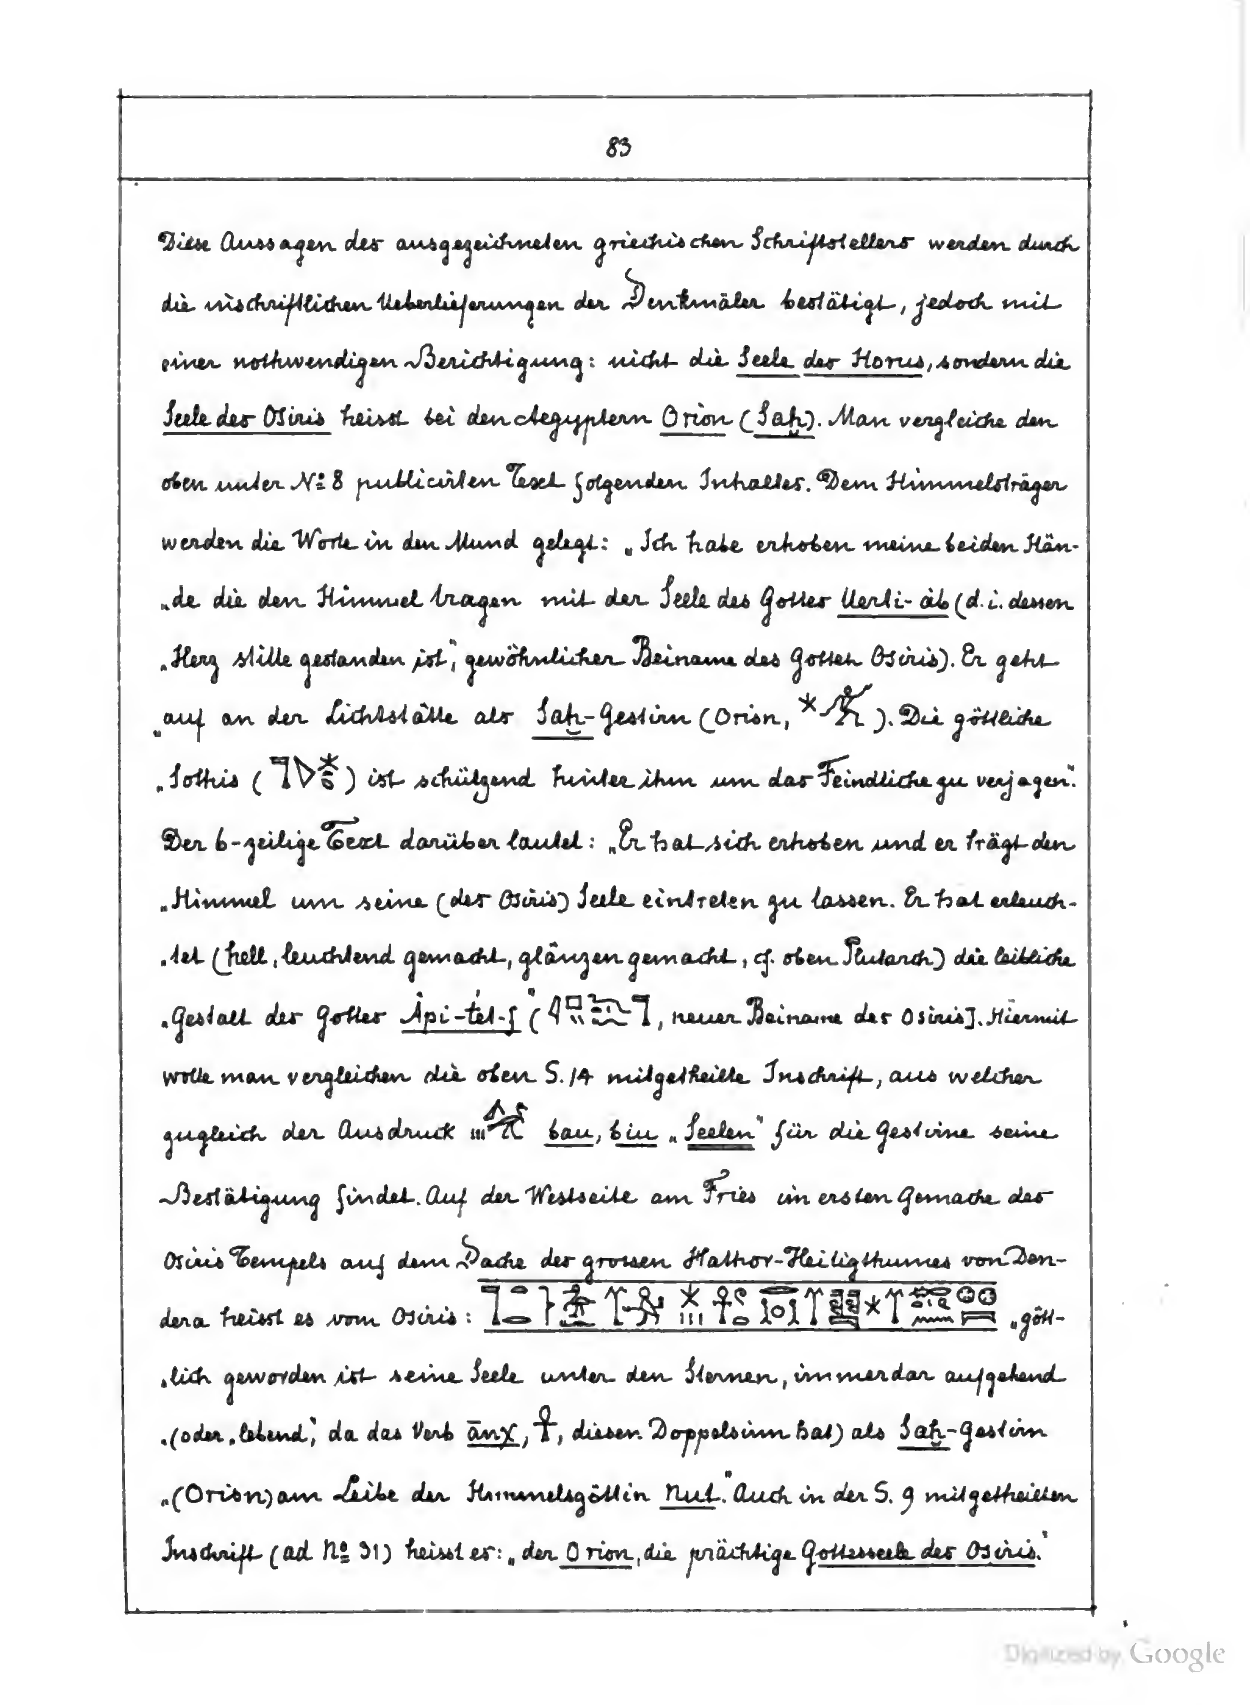 83
Diese Aussagen des ausgezeichneten griechischen Schriftstellers werden durch
die inschriftlichen Ueberlieferungen der Denkmäler bestätigt, jedoch mit
einer nothwendigen Berichtigung: nicht die Seele des Horus, sondern die
Seele des Osiris heisst bei den Aegyptern Orion (Saḥ). Man vergleiche den
oben unter No 8 publicirten Text folgenden Inhaltes. Dem Himmelsträger
werden die Worte in den Mund gelegt: „Ich habe erhoben meine beiden Hän-
„de die den Himmel tragen mit der Seele des Gottes Uerti-áb (d. i. dessen
„Herz stille gestanden ist", gewöhnlicher Beiname des Gottes Osiris). Er geht
„auf an der Lichtstätte als Saḥ-Gestirn (Orion, ). Die göttliche
„Sothis ( ) ist schützend hinter ihm um das Feindliche zu verjagen".
Der 6-zeilige Text darüber lautet: „Er hat sich erhoben und er trägt den
„Himmel um seine (des Osiris) Seele eintreten zu lassen. Er hat erleuch-
„tet (hell, leuchtend gemacht, glänzen gemacht, cf. oben Plutarch) die leibliche
„Gestalt des Gottes Åpi-tet-f" ( , neuer Beiname des Osiris]. Hiermit
wolle man vergleichen die oben S. 14 mitgetheilte Inschrift, aus welcher
zugleich der Ausdruck bau, biu „Seelen" für die Gestirne seine
Bestätigung findet. Auf der Westseite am Fries im ersten Gemache des
Osiris Tempels auf dem Dache des grossen Hathor-Heiligthumes von Den-
dera heisst es vom Osiris: „gött-
„lich geworden ist seine Seele unter den Sternen, immerdar aufgehend
„(oder „lebend", da das Verb ānχ, ☥, diesen Doppelsinn hat) als Saḥ-Gestirn
„(Orion) am Leibe der Himmelsgöttin Nut." Auch in der S. 9 mitgetheilten
Inschrift (ad No 31) heisst es: „der Orion, die prächtige Gottesseele des Osiris."
Digitized by Google